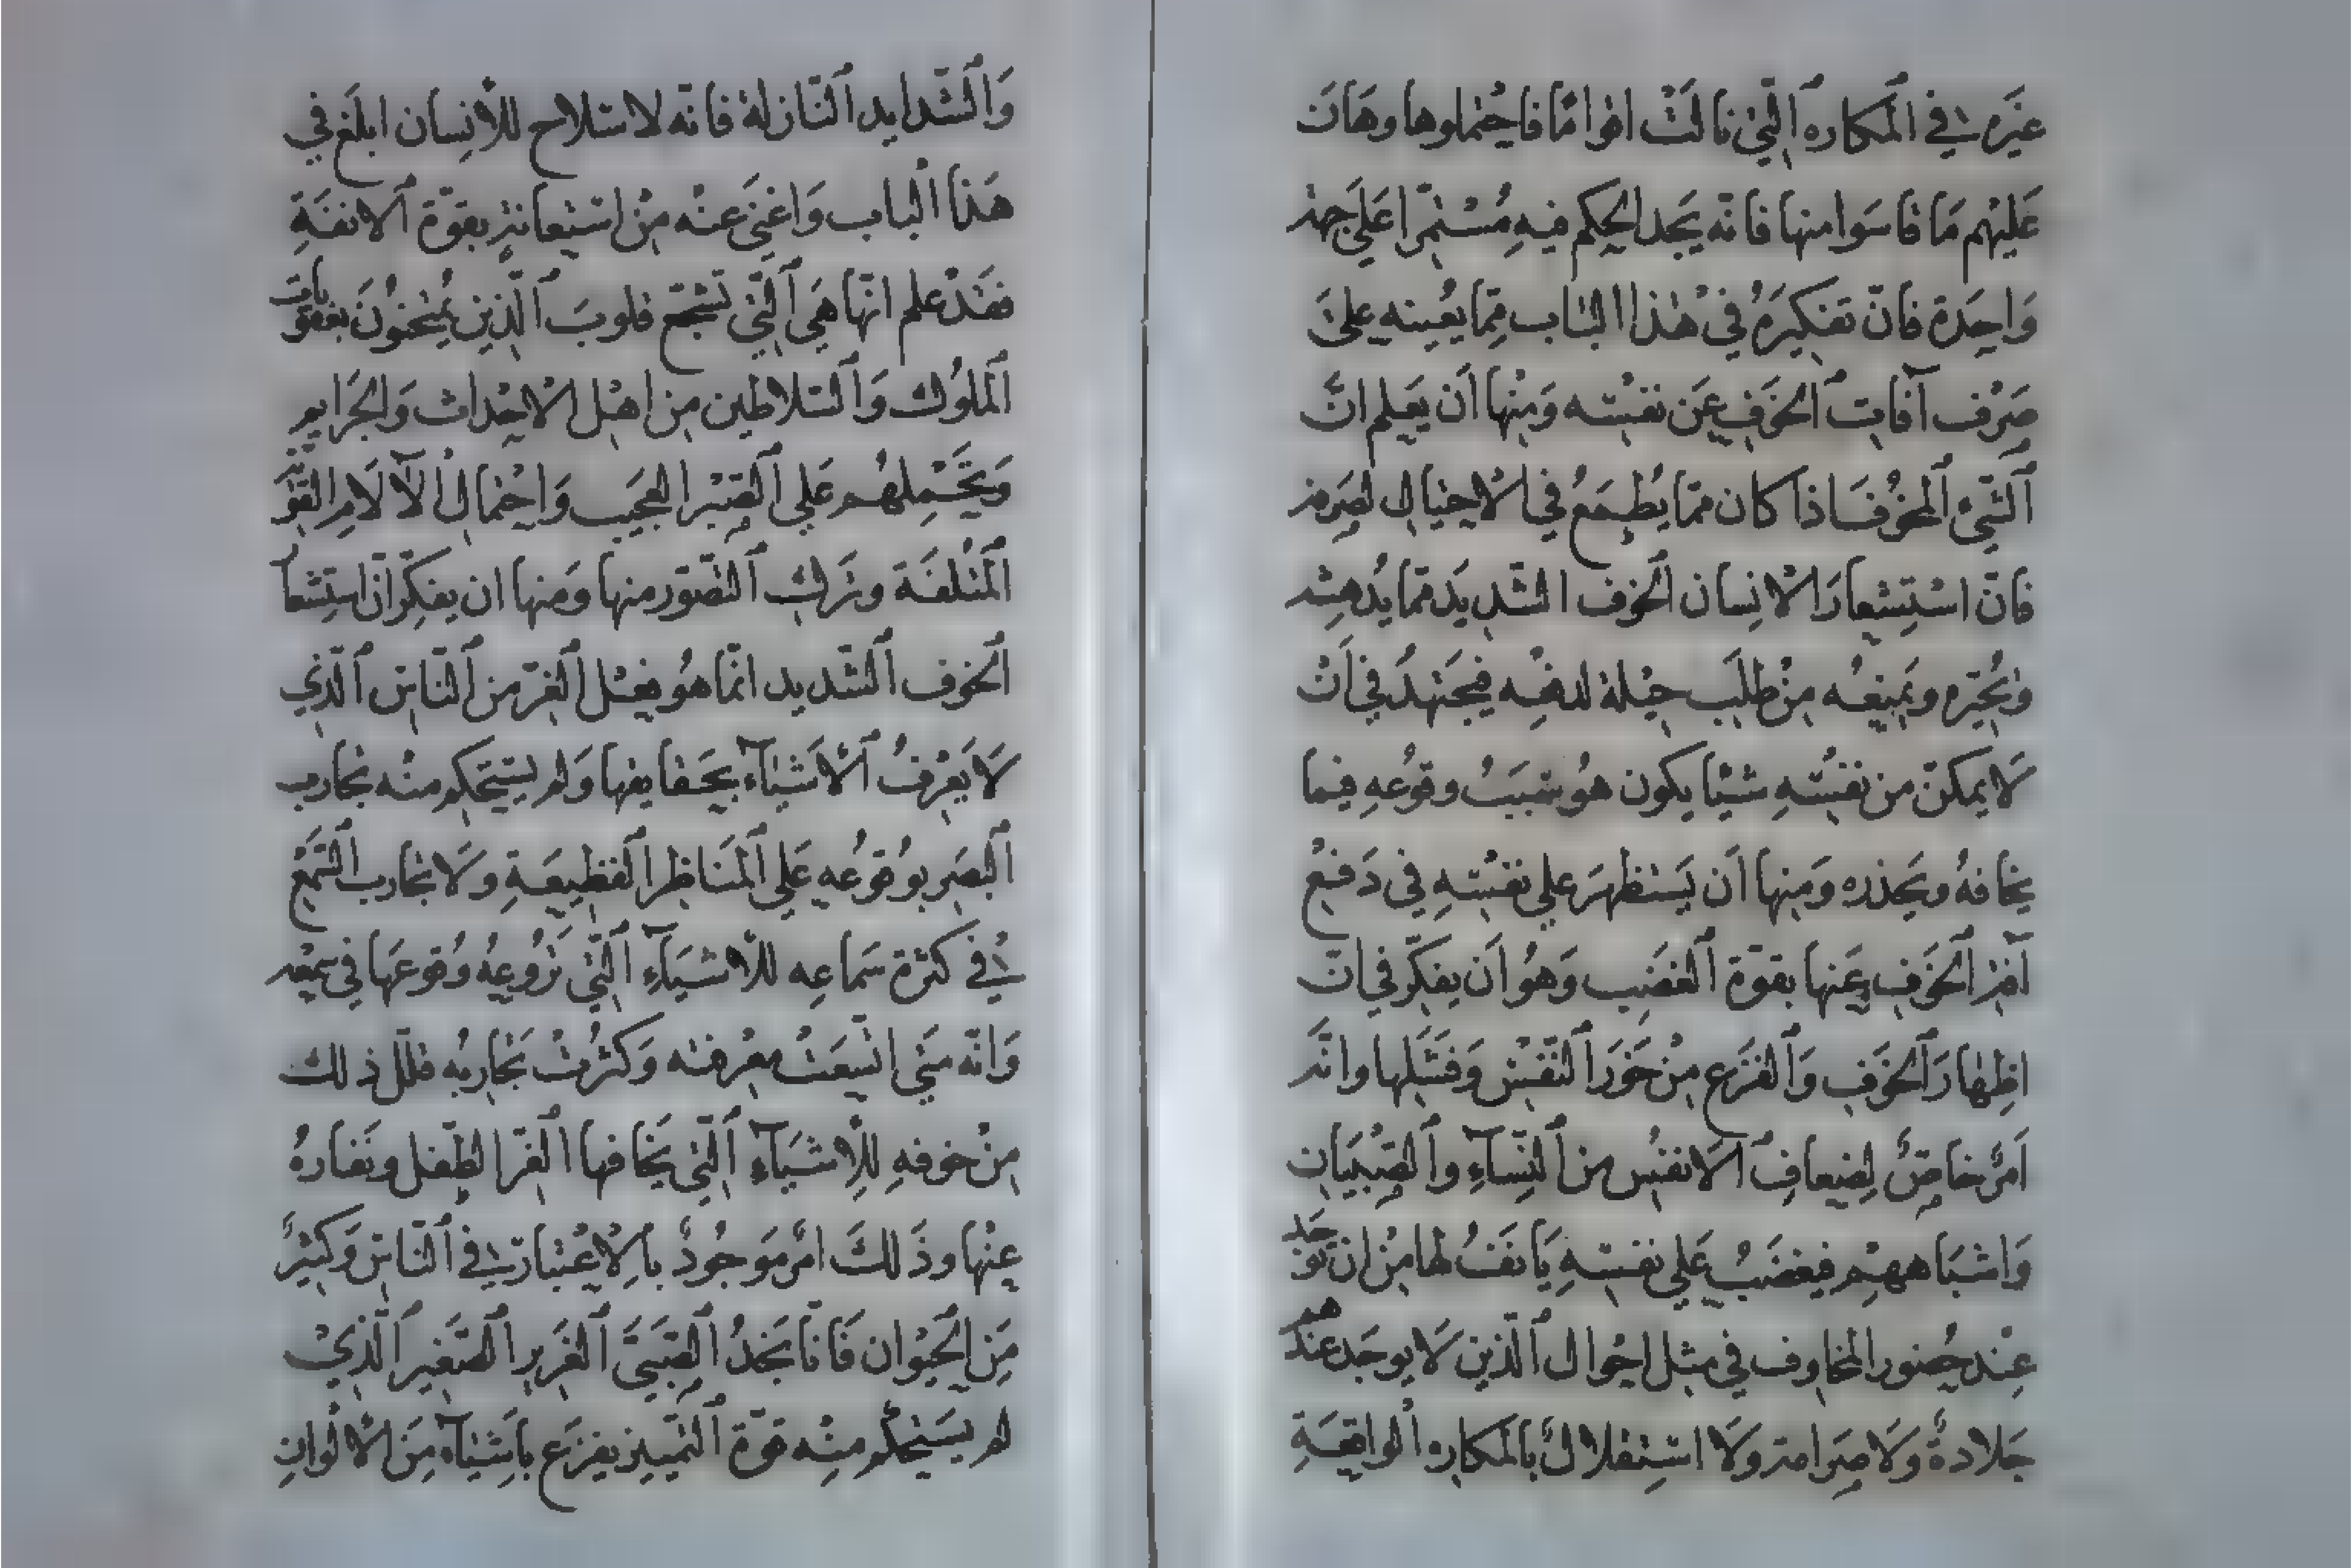 غيره في المكاره التي نالت اقواما فاحتملوها وهان
عليهم ما قاسوا منها فانه يجد الحكم فيه مستمرا على جهة
واحدة فان تفكيره في هذا الباب مما يعينه على
صرف آفات الخوف عن نفسه ومنها ان يعلم ان
الشيء المخوف اذا كان مما يطمع في الاحتيال لصرفه
فان استشعار الانسان الخوف الشديد مما يدهشه
ويحيره ويمنعه من طلب حيلة لدفعه فيجتهد في ان
لا يمكن من نفسه شيئا يكون هو سبب وقوعه فيما
يخافه ويحذره ومنها ان يستظهر على نفسه في دفع
آفة الخوف عنها بقوة الغضب وهو ان يفكر في ان
اظهار الخوف والفزع من خور النفس وفشلها وانه
امر خاص لضعاف الانفس من النساء والصبيان
واشباههم فيغضب على نفسه يانف لها من ان توجد
عند حضور المخاوف في مثل احوال الذين لا يوجد عندهم
جلادة ولا صرامة ولا استقلال بالمكاره الواقعة
والشدايد النازلة فانه لا سلاح للانسان ابلغ في
هذا الباب واغنى عنه من استعانته بقوة الانفة
فقد علم انها هي التي تشجع قلوب الذين يمتحنون بعقوبات
الملوك والسلاطين من اهل الاحداث والجرايم
وتحملهم على الصبر العجيب واحتمال الآلام القوية
المتلفة وترك التضور منها ومنها ان يفكر ان استشعار
الخوف الشديد انما هو فعل الغر من الناس الذي
لا يعرف الاشياء بحقايقها ولم يستحكم منه تجارب
البصر بوقوعه على المناظر الفظيعة ولا تجارب السمع
في كثرة سماعه للاشياء التي تروعه وقوعها في سمعه
وانه متى اتسعت معرفته وكثرت تجاربه قلل ذلك
من خوفه للاشياء التي يخافها الغر الطفل ونفاره
عنها وذلك امر موجود بالاعتبار في الناس وكثير
من الحيوان فانا نجد الصبي الغرير الصغير الذي
لم يستحكم منه قوة التمييز يفزع باشياء من الالوان